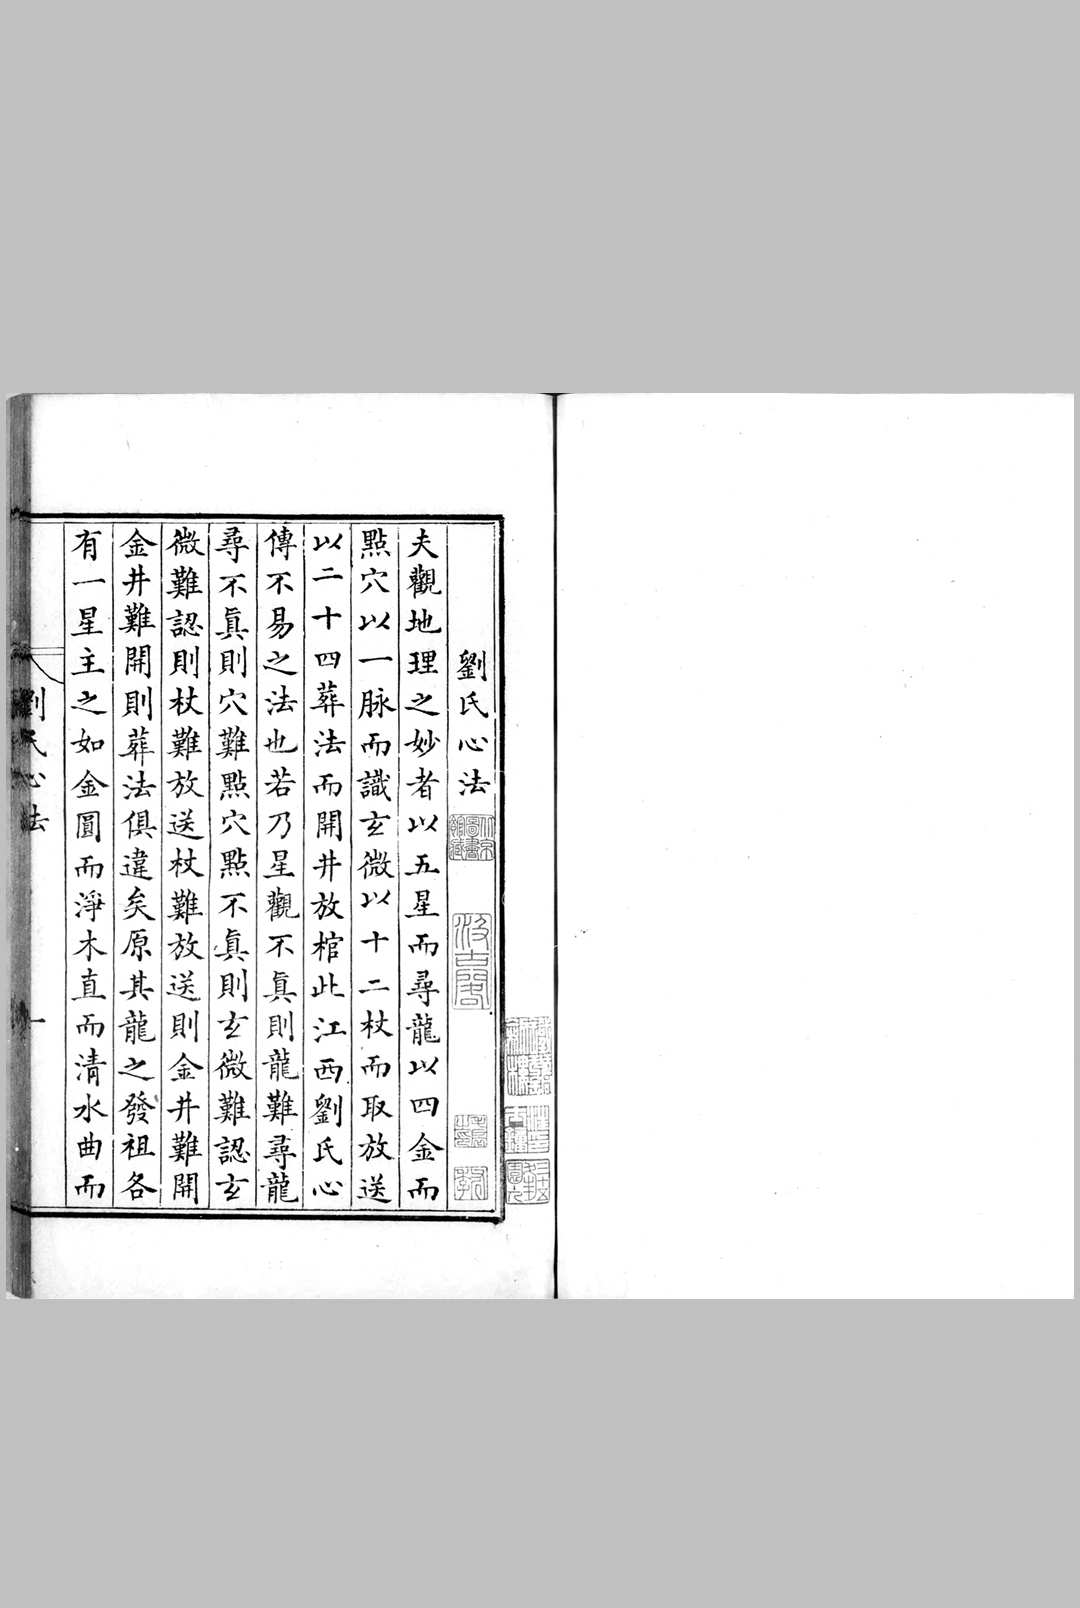 劉氏心法
夫觀地理之妙者以五星而尋龍以四金而
點穴以一脉而識玄微以十二杖而取放送
以二十四葬法而開井放棺此江西劉氏心
傳不易之法也若乃星觀不眞則龍難尋龍
尋不眞則穴難點穴點不眞則玄微難認玄
微難認則杖難放送杖難放送則金井難開
金井難開則葬法俱違矣原其龍之發祖各
有一星主之如金圓而淨木直而清水曲而
劉氏心法
一
汲古閣